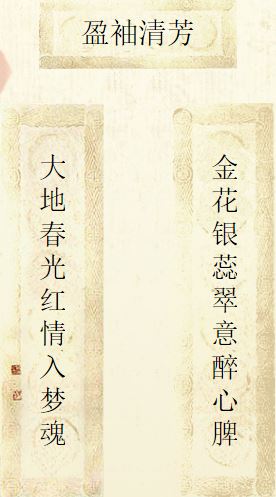 盈袖清芳
金花银蕊翠意醉心脾
大地春光红情入梦魂